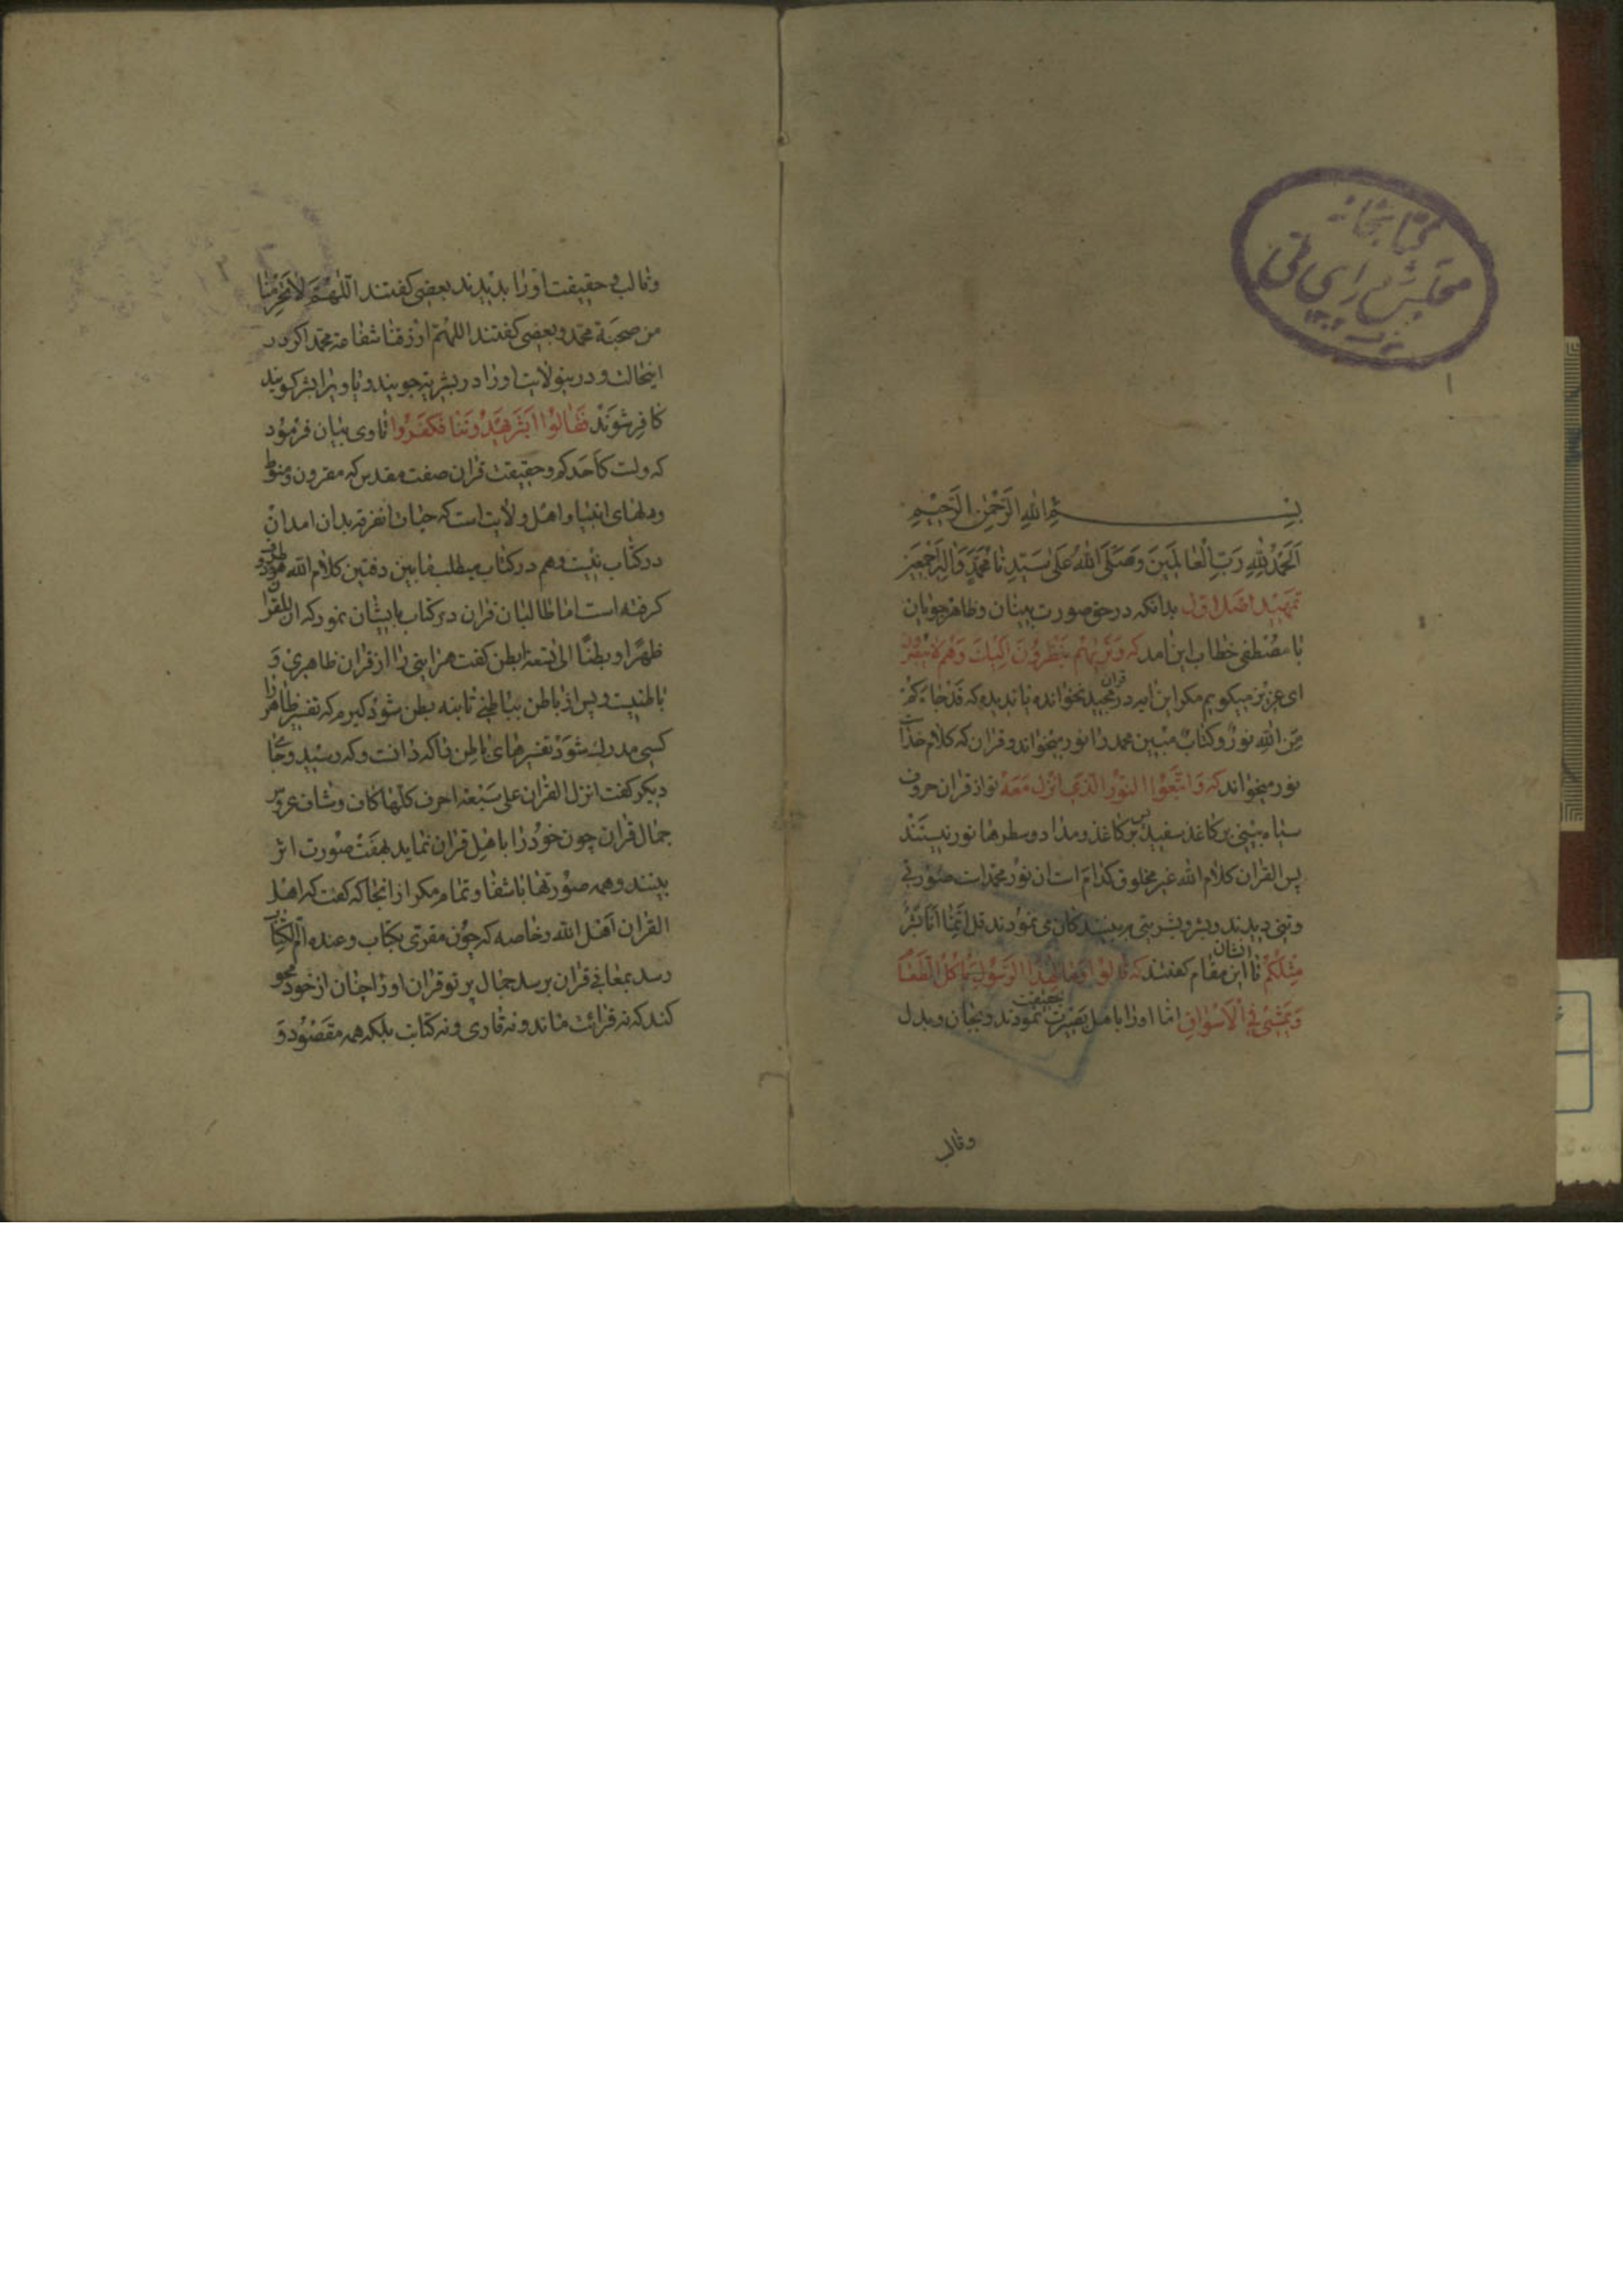 کتابخانه
مجلس شورای ملی
۱
بسم الله الرحمن الرحیم
الحمد لله رب العالمین وصلی الله علی سیدنا محمد واله اجمعین
تمهید اصل اول بدانکه در حق صورت بینان و ظاهر جویان
با مصطفی خطاب این آمد که وتریهم ینظرون الیک وهم لا یبصرون
ای عزیز میگویم مگر این ایه در قران مجید نخوانده یا ندیده که قد جاءکم
من الله نور و کتاب مبین محمد را نور میخواند و قران که کلام خداست
نور میخواند که واتبعوا النور الذی انزل معه تو از قران حروف
سیاه بینی بر کاغذ سفید بدانکه کاغذ و مداد و سطرها نور نیستند
پس القران کلام الله غیر مخلوق کدام است ان نور محمد است صورتی
وتنی دیدند و بشر و بشریتی بر بینندکان می نمودند قل انما انا بشر
مثلکم تا ایشان این مقام گفتند که قالوا ما لهذا الرسول یاکل الطعام
ویمشی فی الاسواق اما اورا با هل بصیرت بحقیقت نمودند و بجان و بدل
وقالب
وقالب و حقیقت اورا بدیدند بعضی کفتند اللهم لا تحرمنا
من صحبة محمد و بعضی کفتند اللهم ارزقنا شفاعة محمد اکر در
اینحالت و در ینولایت اورا در بشریة جویند و یا ویرا بشر کویند
کافر شوند فقالوا ابشر یهدوننا فکفروا تا وی بیان فرمود
که ولست کاحدکم و حقیقت قران صفت مقدس که مقرون و منوط
ودلهای انبیا و اهل ولایت است که حیات انفرقه بدان امد ان
در کتاب نیست وهم در کتاب میطلب ما بین دفتین کلام الله هر دو طرف
کرفته است اما طالبان قران در کتاب با یشان نمود که ان للقران
ظهرا و بطنا الی سبعة ابطن کفت هر ایتی را از قران ظاهری و
باطنیست و پس از باطن بباطنی تا بنه بطن شود کیرم که تفسیر ظاهر را
کسی مدرک شود تفسیرهای باطن را که دانست و که رسید و جای
دیکر کفت انزل القران علی سبعة احرف کلها کاف و شاف عروس
جمال قران چون خود را با هل قران نماید بهفت صورت اثر
بینند و همه صورتها با شفا و تمام مکر ازانجا که کفت که اهل
القران اهل الله و خاصه که چون مقری بکتاب و عنده ام الکتاب
رسد بمعانی قران برسد جمال پرتو قران اورا چنان از خود محو
کند که نه قرائت ماند و نه قاری و نه کتاب بلکه همه مقصود و